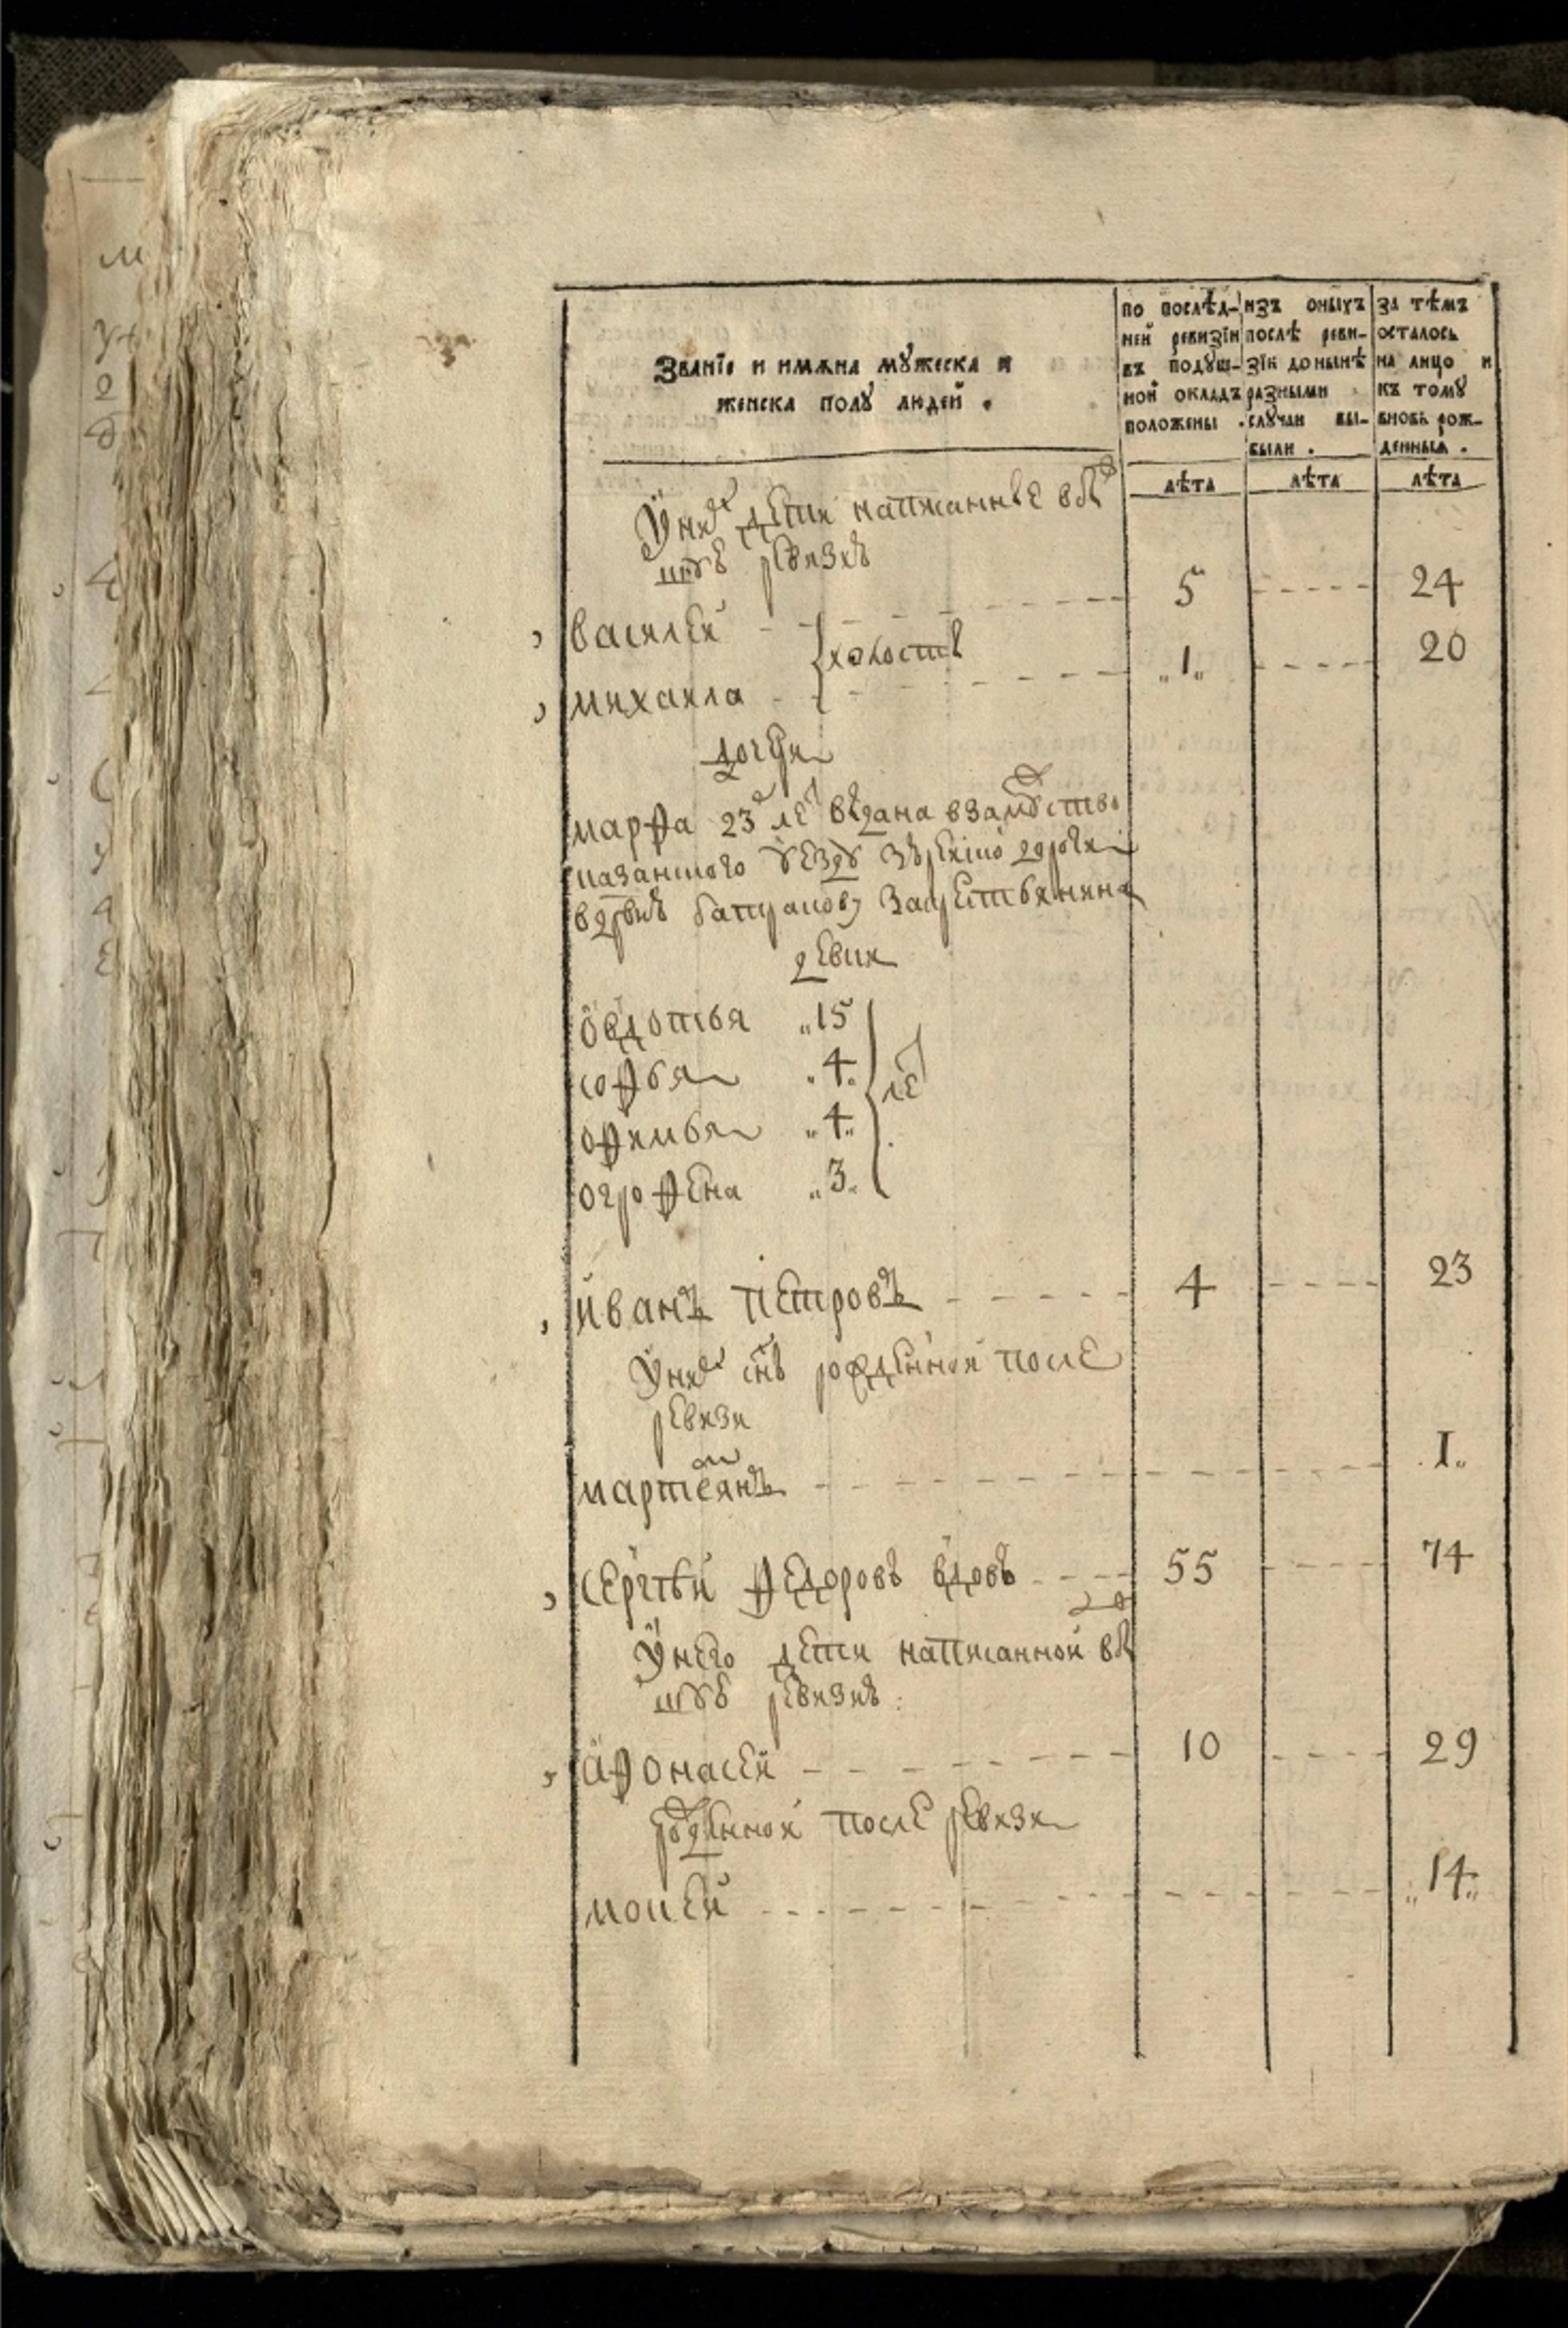 Званїе и имѧна мꙋжеска и
женска полꙋ людей .
по послѣд-
ней ревизїи
въ подꙋш-
ной окладъ
положены .
изъ оныхъ
послѣ реви-
зїи до нынѣ
разными
слꙋчаи вы-
были .
за тѣмъ
осталось
на лицо и
къ томꙋ
вновь рож-
денныѧ .
лѣта лѣта лѣта
У них дети написанные в
ту ревизию
василей 5 24
холосты
михаила „1„ 20
дочери
марфа 23 лет выдана в замужство
казанского уезду зюрейской дороги
в дрвню за крестьянина
девки
овдотья „15
софья „4„
лет
офимья „4„
огрофена „3„
иванъ петровъ 4 23
У них снъ рожденной после
ревизи
мартемянъ 1„
сергѣй федоровъ вдовъ 55 74
У него дети написанной в
ту ревизию
афонасей 10 29
рожденной после ревизи
мосей „14„